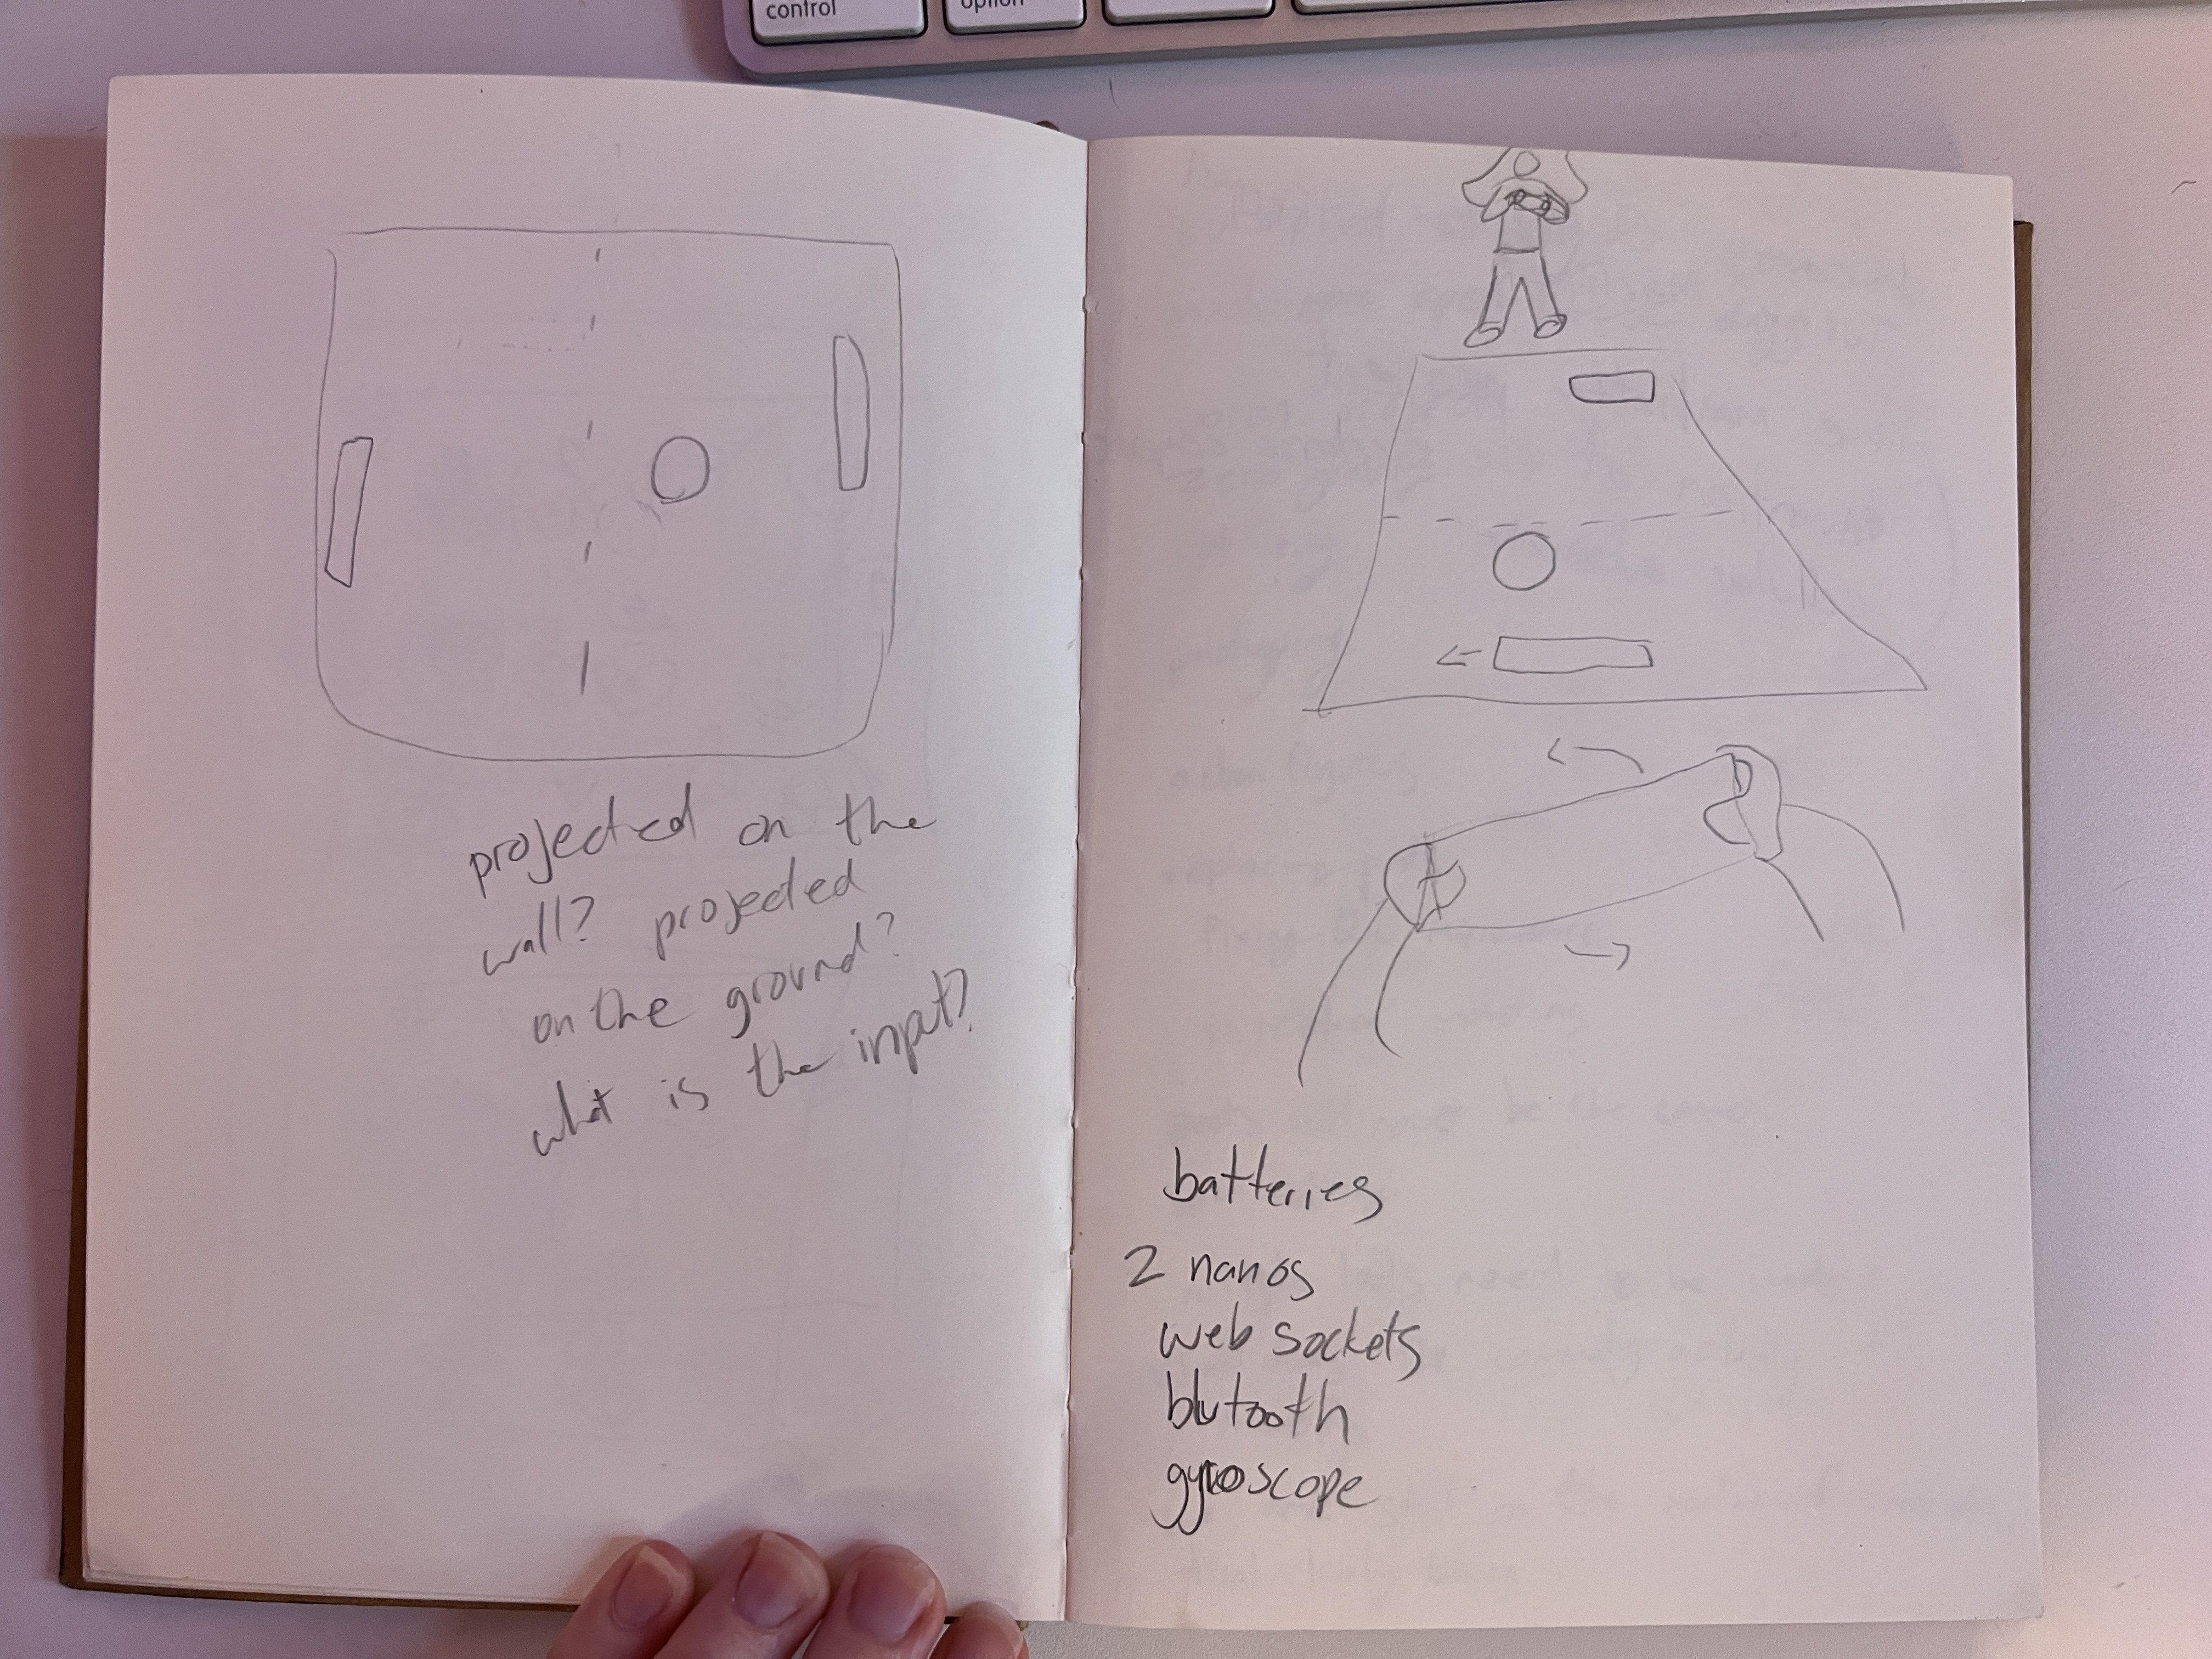 control
option
projected on the
wall? projected
on the ground?
what is the input?
batteries
2 nanos
web sockets
blutooth
gyroscope